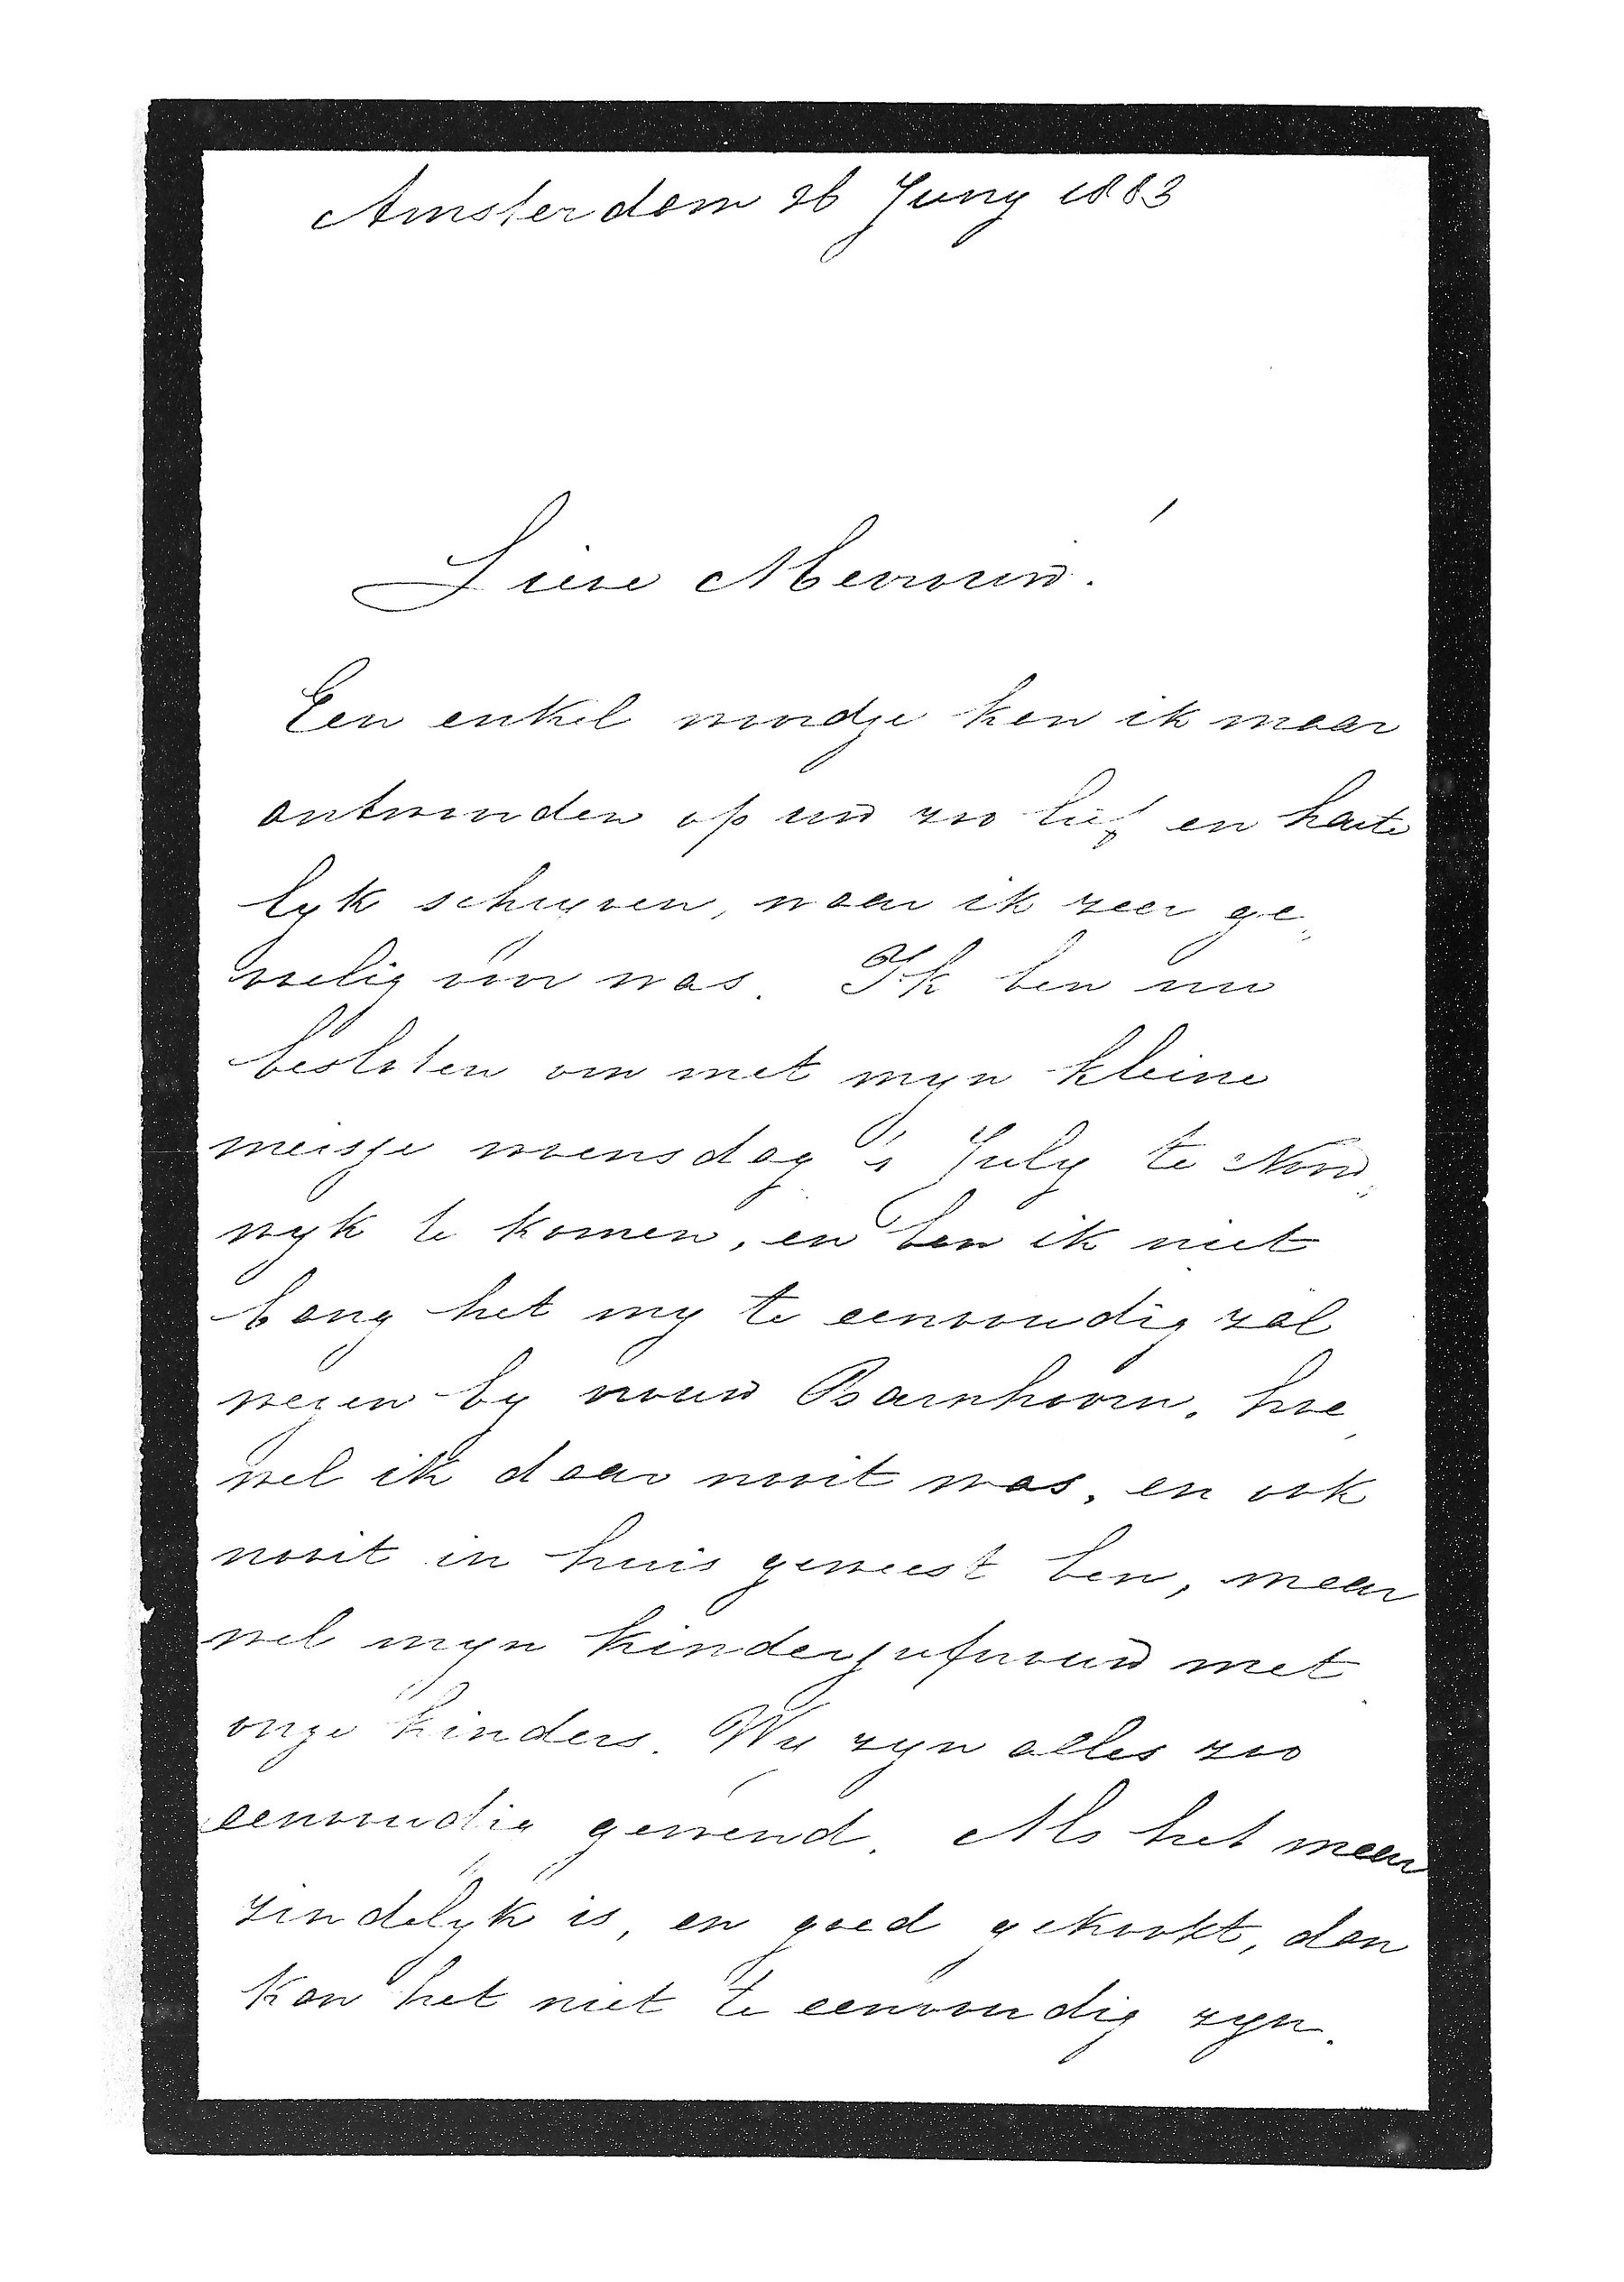 Amsterdam 26 Juny 1883
Lieve Mevrouw!
Een enkel woordje kan ik maar
antwoorden op uw zoo lief en harte
lyk schryven, waar ik zeer ge„
voelig voor was. Ik ben nu
besloten om met myn kleine
meisje woensdag 4 July te Noord„
wyk te komen, en ben ik niet
bang het my te eenvoudig zal
wezen by vrouw Barnhoorn, hoe„
wel ik daar nooit was, en ook
nooit in huis geweest ben, maar
wel myn kinderjufvrouw met
onze kinders. Wy zyn alles zoo
eenvoudig gewend. Als het maar
zindelyk is, en goed gekookt, dan
kan het niet te eenvoudig zyn.